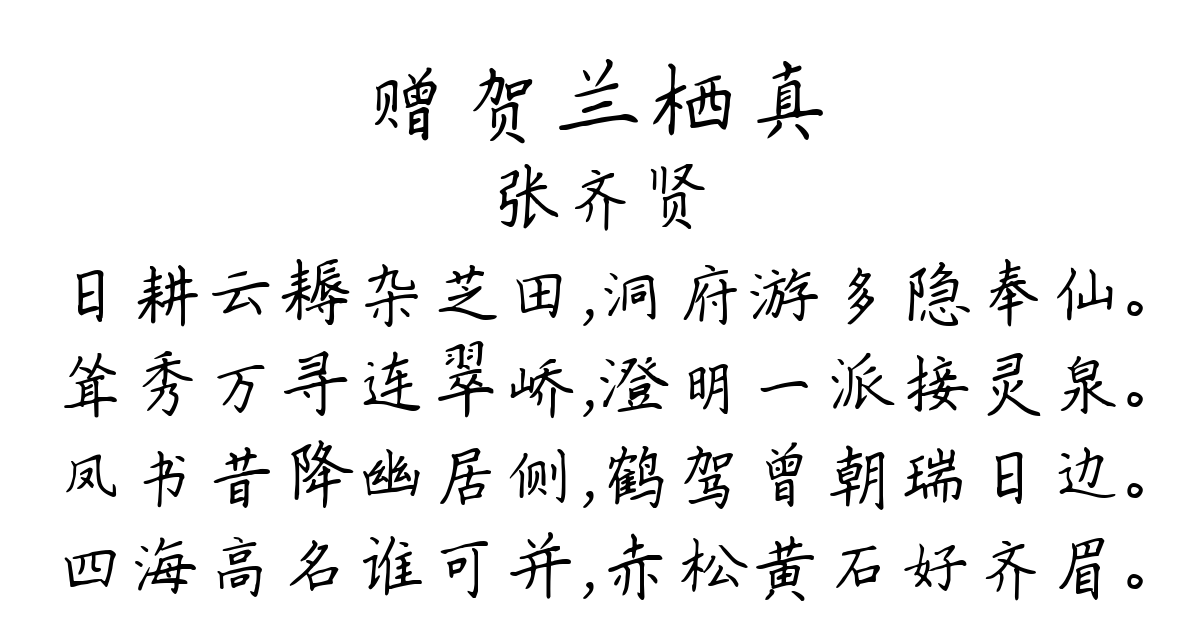 赠贺兰栖真
张齐贤
日耕云耨杂芝田,洞府游多隐奉仙。
耸秀万寻连翠峤,澄明一派接灵泉。
凤书昔降幽居侧,鹤驾曾朝瑞日边。
四海高名谁可并,赤松黄石好齐眉。